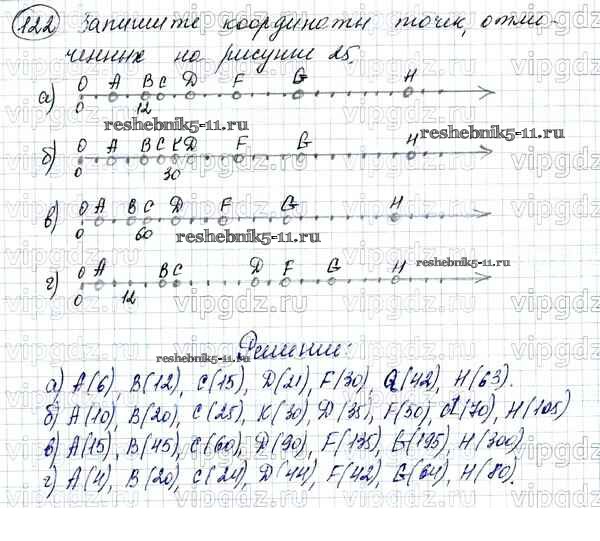 122 Запишите координаты точек, отме-
ченных на рисунке 25.
а) O A B C D F G H
0 12
reshebnik5-11.ru
reshebnik5-11.ru
б) O A B C K D F G H
0 30
в) O A B C D F G H
0 60
reshebnik5-11.ru
г) O A B C D F G H
0 12
reshebnik5-11.ru
Решение:
reshebnik5-11.ru
а) A(6), B(12), C(15), D(21), F(30), G(42), H(63).
б) A(10), B(20), C(25), K(30), D(35), F(50), G(70), H(105)
в) A(15), B(45), C(60), D(90), F(135), G(195), H(300).
г) A(4), B(20), C(24), D(44), F(42), G(64), H(80).
vipgdz.ru